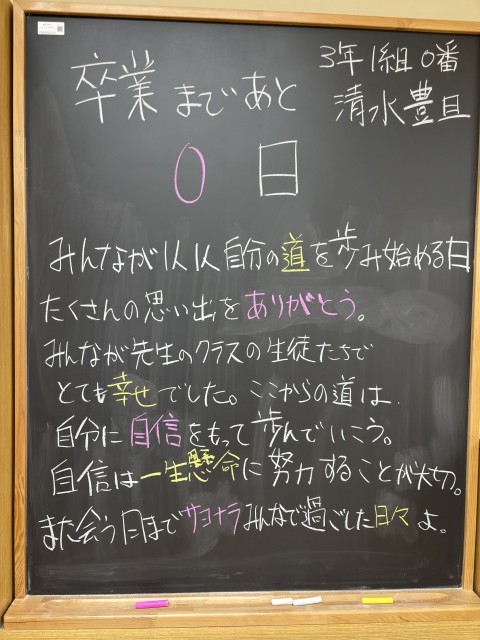 卒業まであと
3年1組0番
清水豊且
0日
みんなが1人1人自分の道を歩み始める日
たくさんの思い出をありがとう。
みんなが先生のクラスの生徒たちで
とても幸せでした。ここからの道は
自分に自信をもって歩んでいこう。
自信は一生懸命に努力することが大切。
また会う日までサヨナラみんなで過ごした日々よ。